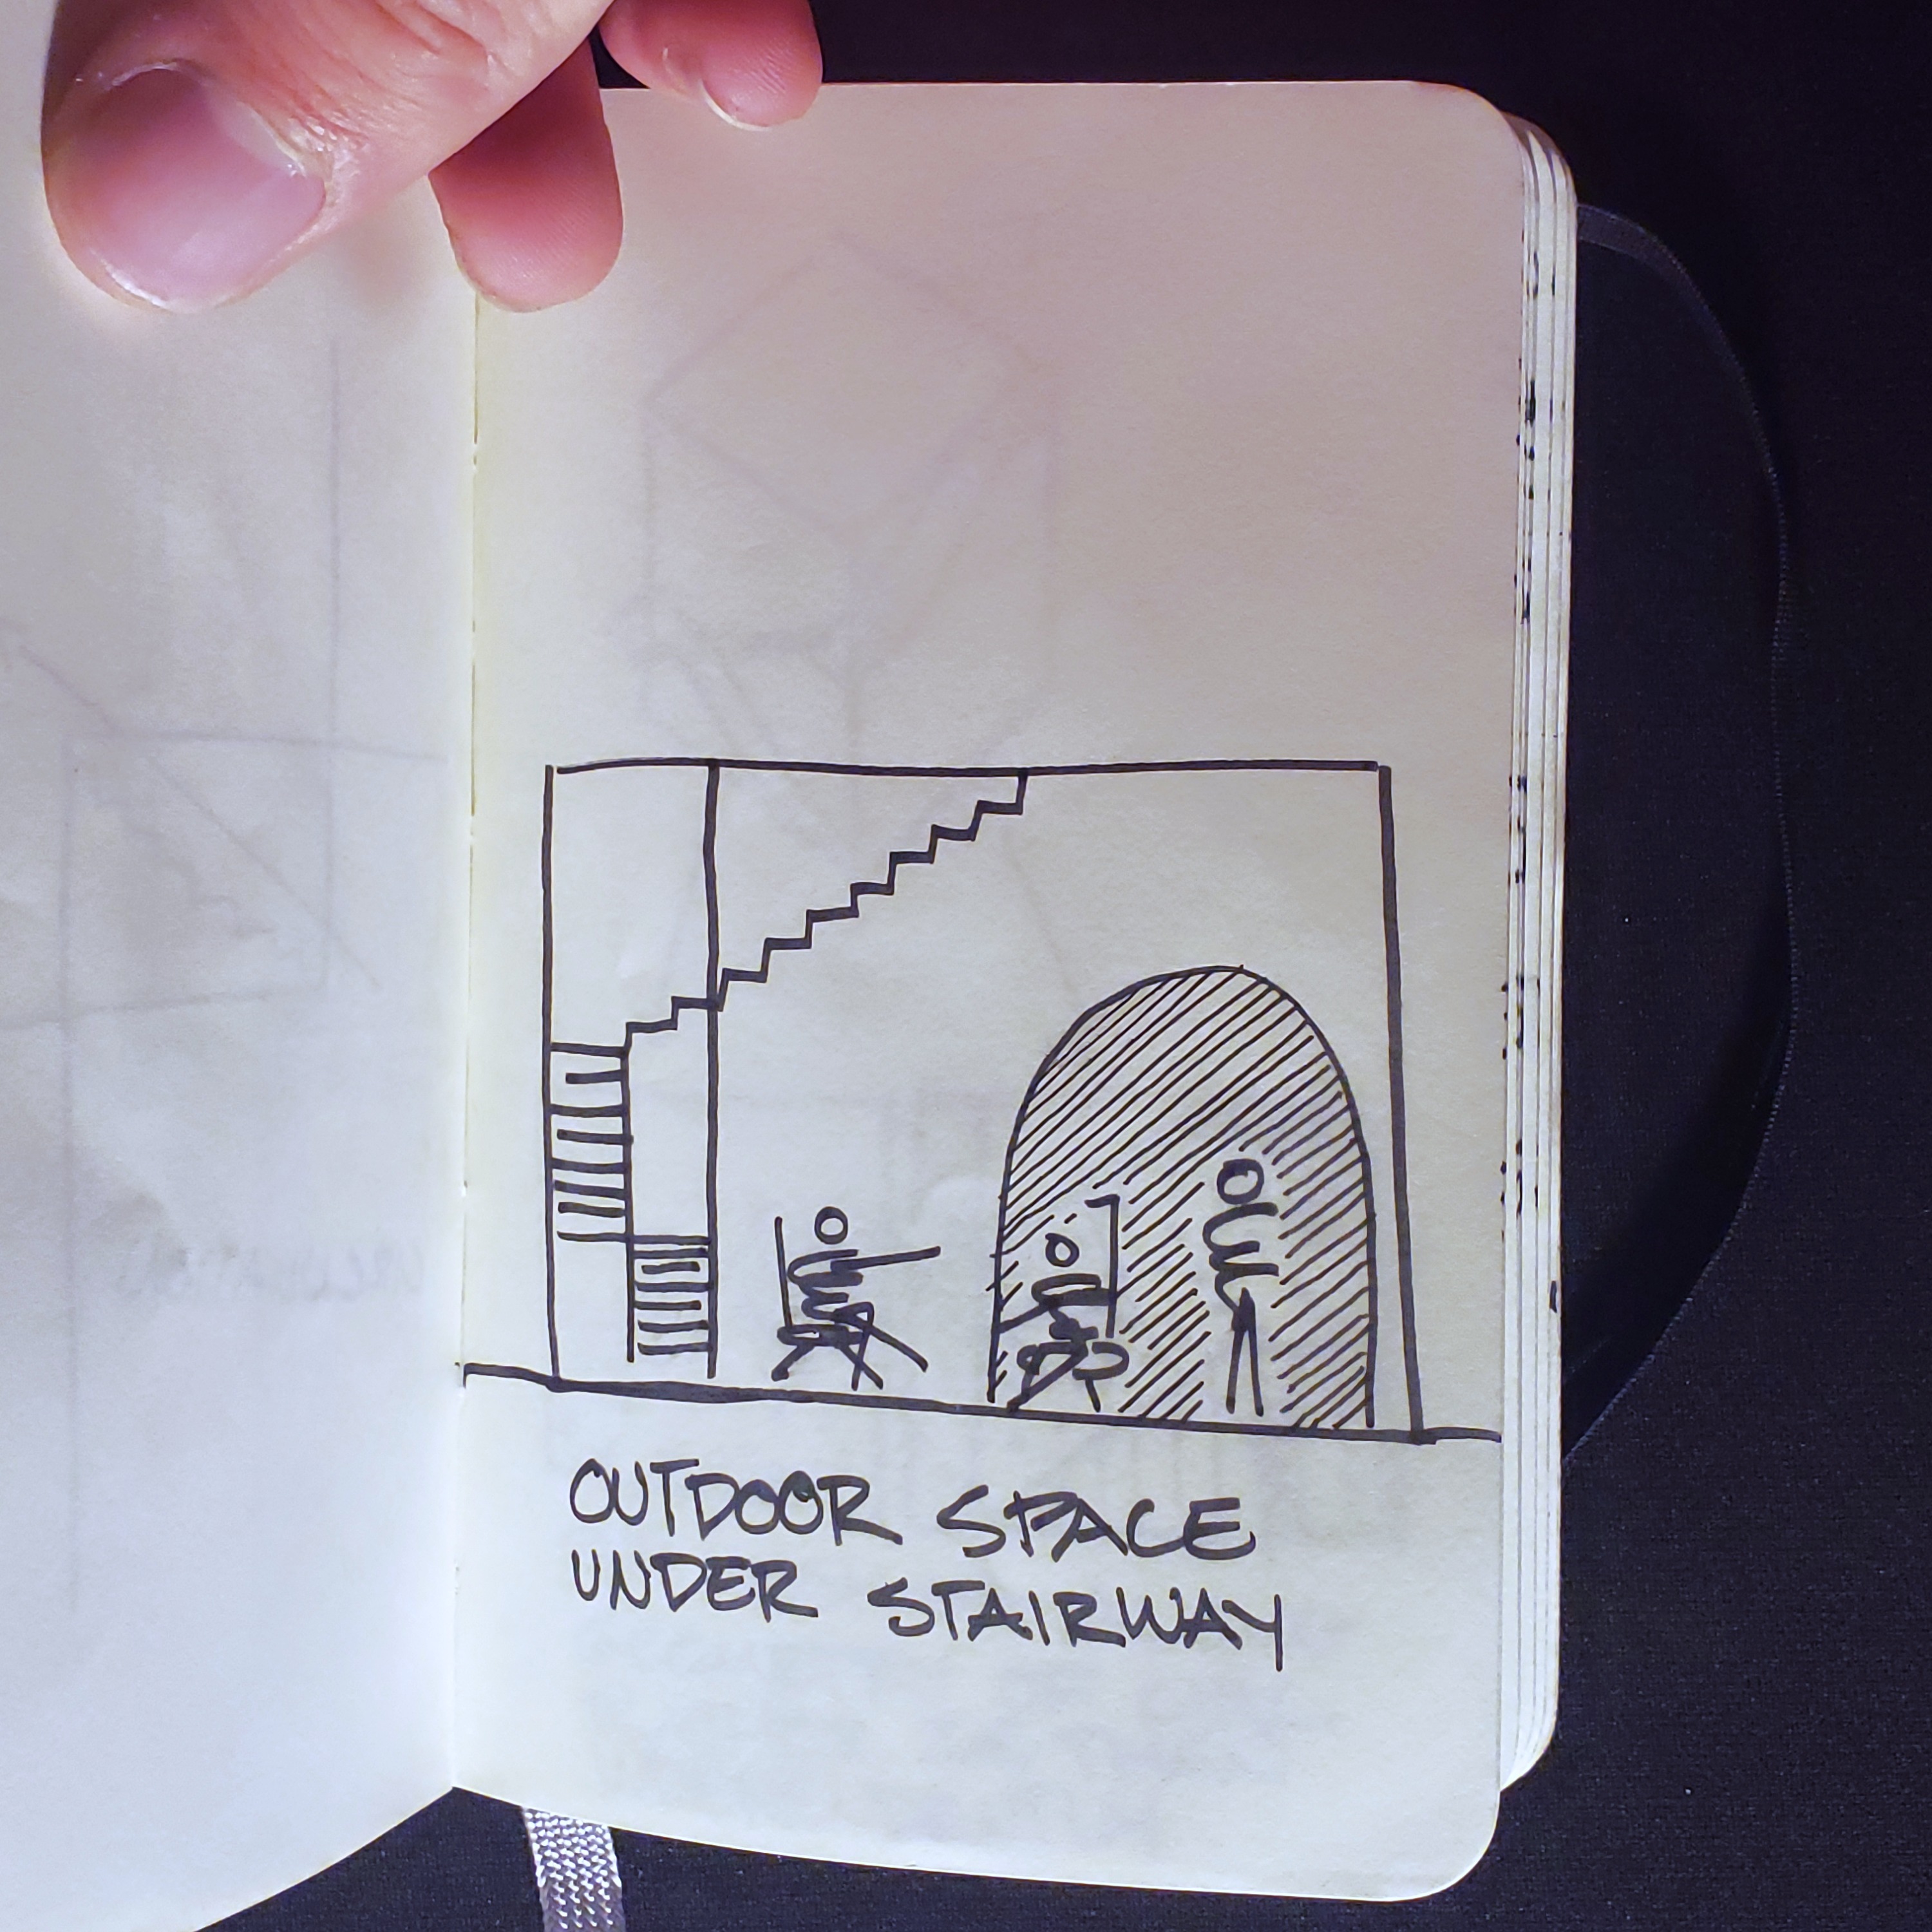 OUTDOOR SPACE
UNDER STAIRWAY